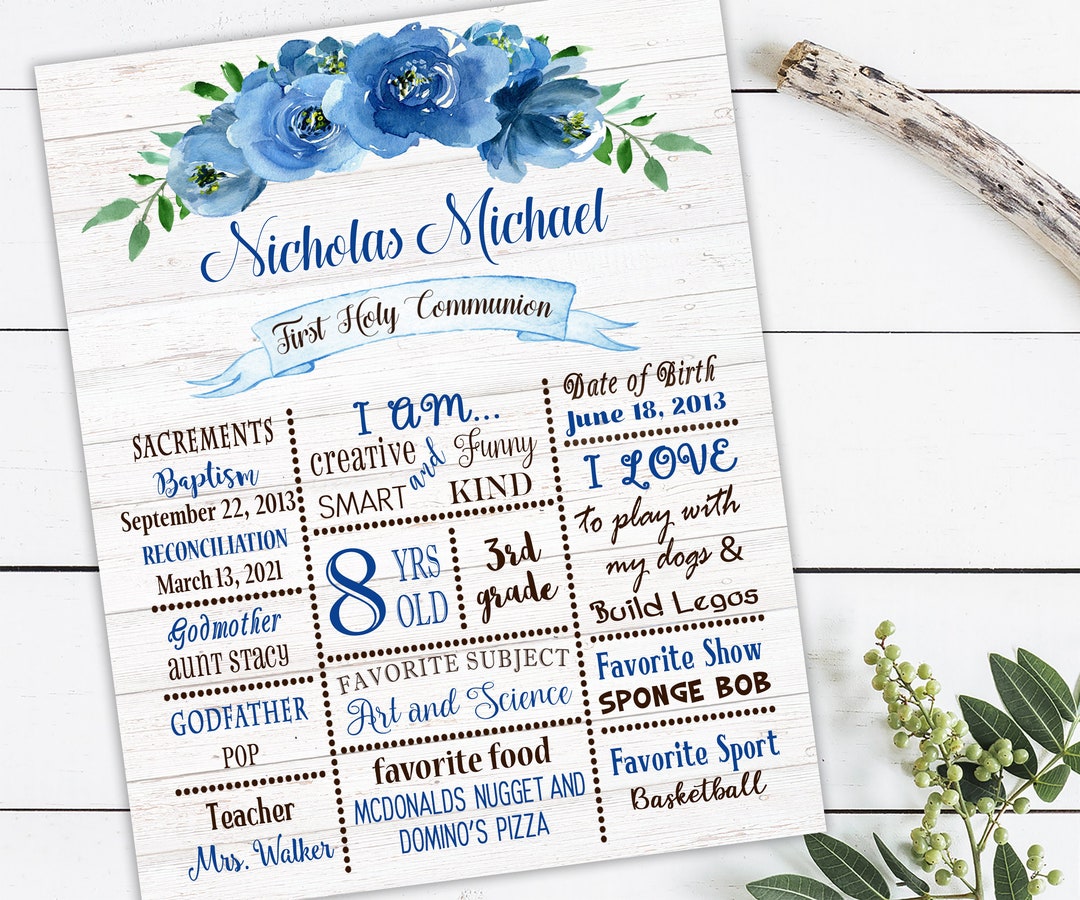 Nicholas Michael
First Holy Communion
SACREMENTS
Baptism
September 22, 2013
RECONCILIATION
March 13, 2021
Godmother
aunt stacy
GODFATHER
POP
Teacher
Mrs. Walker
I AM...
creative and Funny
SMART KIND
8 YRS OLD
3rd
grade
FAVORITE SUBJECT
Art and Science
favorite food
MCDONALDS NUGGET AND
DOMINO'S PIZZA
Date of Birth
June 18, 2013
I LOVE
to play with
my dogs &
Build Legos
Favorite Show
SPONGE BOB
Favorite Sport
Basketball